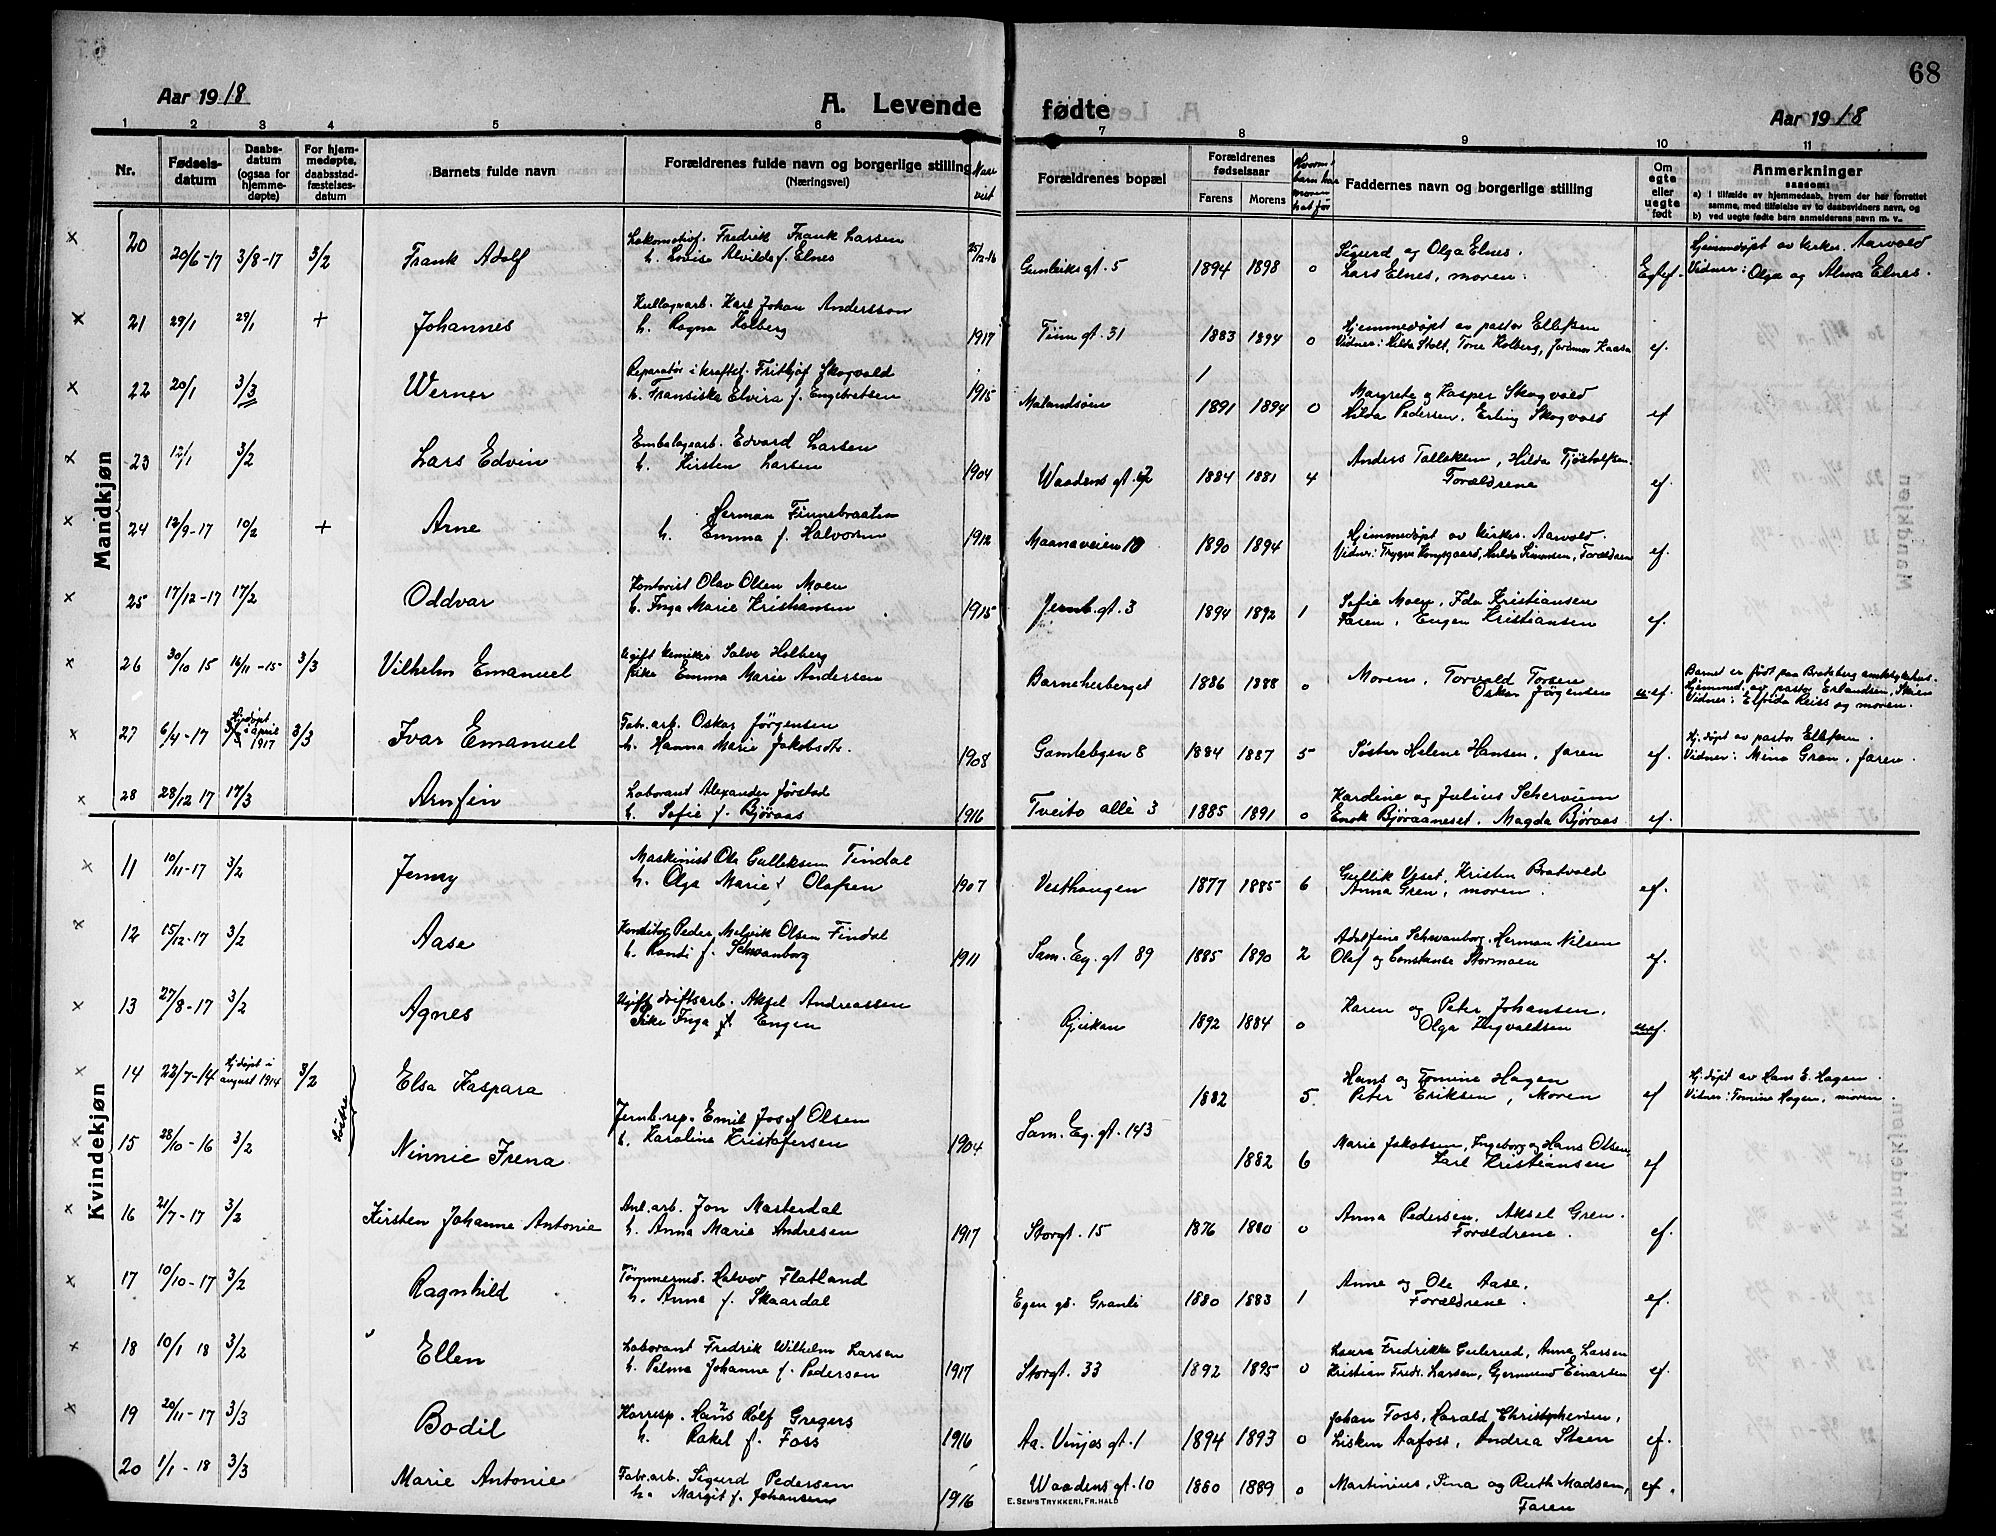 68
Aar 1918
A. Levende fødte
Aar 1918
1 2 3 4 5 6 7 8 9 10 11
Nr.
Fødsels-datum
Daabs-datum (ogsaa for hjemme-døpte)
For hjem-medøpte, daabsstad-fæstelses-datum
Barnets fulde navn
Forældrenes fulde navn og borgerlige stilling
(Næringsvei)
Forældrenes bopæl
Forældrenes fødselsaar
Farens Morens
Faddernes navn og borgerlige stilling
Om egte eller uegte født
Anmerkninger
saasom:
a) i tilfælde av hjemmedaab, hvem der har forrettet samme, med tilføielse av to daabsvidners navn, og
b) ved uegte fødte barn anmelderens navn m. v.
Mandkjøn
20 20/6-17 3/8-17 3/2 Frank Adolf
Lokomotivf. Fredrik Frank Larsen
h. Lovise Alvilde f. Elnes
25/12-16 Gunleiksgt. 5 1894 1898 0
Sigurd og Olga Elnes.
Lars Elnes, moren.
Egtef.
Hjemmedøpt av kirkes. Aarvold
Vidner: Olga og Alma Elnes.
21 29/1 29/1 + Johannes
Karl Johan Andersson
h. Ragna Holberg
1917 Tinngt. 31 1883 1894 0
Hjemmedøpt av pastor Ellefsen
Vidner: Hilda Stolt, Tone Holberg,
ef.
22 20/1 3/3 Werner
Reparatør i kraftst. Fritjof Skogvold
h. Fransiska Elvira f. Engebretsen
1915 Mælandsøen 1891 1894 0
Margrete og Kasper Skogvold
Hilda Pedersen, Erling Skogvold
ef
23 12/1 3/2 Lars Edvin
Embalagearb. Edvard Larsen
h. Kirsten Larsen
1904 Waadens gt. 1884 1881 4
Anders Tolleksen, Hilda
Forældrene
ef.
24 12/9-17 10/2 + Arne
Herman Finnebraaten
h. Emma f. Halvorsen
1912 Maanaveien 10 1890 1894
Hjemmedøpt av kirkes. Aarvold.
Vidner: Trygve Kongsgaard, Hulda Simonsen, Forældrene
ef.
25 17/12-17 17/2 Oddvar
Kontorist Olav Olsen Moen
h. Inga Marie Kristiansen
1915 Jernb.gt. 3 1894 1892 1
Sofie Moen, Ida Kristiansen
Faren, Eugen Kristiansen
ef.
26 30/10 15 16/11-15 3/3 Vilhelm Emanuel
Ugift kemiker Salve Holberg
Pike Emma Marie Andersen
Barneherberget 1886 1888 0
Moren, Torvald Torsen
Oskar Jørgensen
u.ef.
Barnet er født paa Bratsberg amtssykehus.
Hjemmed. av pastor Erlandsen, Skien
Vidner: Elfrida Reiss og moren.
27 6/4-17 Hj.døpt i april 1917 3/3 Ivar Emanuel
Fab.arb. Oskar Jørgensen
h. Hanna Marie Jakobsdt.
1908 Gamlebyen 8 1884 1887 5
Søster Helene Hansen, faren
ef.
Hj.døpt av pastor Ellefsen.
Vidner: Mina Gran, faren.
28 28/12 17 17/3 Arnfin
Laborant Alexander Jørstad
h. Sofie f. Bjøraas
1916 Tveito allé 3 1885 1891 0
Kardine og Julius Schervum
Enok Bjøraaneset, Magda Bjøraas
ef.
Kvindekjøn
11 10/11-17 3/2 Jenny
Maskinist Ole Gulleksen Tindal
h. Olga Marie Olafsen
1907 Vesthaugen 1877 1885 6
Gullik Uset, Kristen Bratvold
Anna Gren, moren.
ef.
12 15/12-17 3/2 Aase
Konditor Peder Melvik Olsen Tindal
h. Randi f. Schwanborg
1911 Sam. Eg. gt 89 1885 1890 2
Adolfine Schwanborg, Herman Nilsen
Olaf og Constanse Stormoen
ef.
13 27/8-17 3/2 Agnes
Ugift driftsarb. Aksel Andreassen
Pike Inga f. Engen
Rjukan 1892 1884 0
Karen og Peter Johansen,
Olga Sigvaldsen
u.ef.
14 22/7-14 Hj.døpt i august 1914 3/2 Elsa Kaspara
1882 5.
Hans og Tomine Hagen
Peter Eriksen, Moren
ef
Hj. døpt av Hans E. Hagen.
Vidner: Tomine Hagen, moren.
Søstre
Jernb.rep. Emil Josef Olsen
h. Karoline Kristofersen
1904 Sam. Eg. gt. 143
15 28/10-16 3/2 Ninnie Irena
1882 6
Marie Jakobsen, Ingeborg og Hans Olsen,
Karl Kristiansen
ef
16 21/7-17 3/2 Kirsten Johanne Antonie
Anl.arb. Jon Masterdal
h. Anna Marie Andresen
1917 Storgt. 15 1876 1880 0
Anna Pedersen, Aksel Gren.
Forældrene.
ef.
17 10/10-17 3/2 Ragnhild
Tømmerm. Halvor Flatland
h. Anne f. Skaardal
Egen gd. Granli 1880 1883 1
Anne og Ole Aase.
Forældrene.
ef.
18 10/1 18 3/2 Ellen
Laborant Fredrik Wilhelm Larsen
h. Palma Johanne f. Pedersen
1917 Storgt. 33 1892 1895 0
Laura Fredrikke Gulerud, Anna Larsen
Kristian Fredr. Larsen, Gjermund Einarsen
ef.
19 20/11-17 3/3 Bodil
Korresp. Hans Rolf Gregers
h. Rakel f. Foss
1916 Aa. Vinjes gt. 1 1894 1893 0
Johan Foss, Harald Christophersen,
Lisken Aafoss, Andrea Steen
ef.
20 1/1-18 3/3 Marie Antonie
Fab.arb. Sigurd Pedersen
h. Margit f. Johansen
1916 Waadens gt. 10 1880 1889 0
Martinius, Sina og Ruth Madsen,
Faren
ef.
E. SEM'S TRYKKERI, FR.HALD